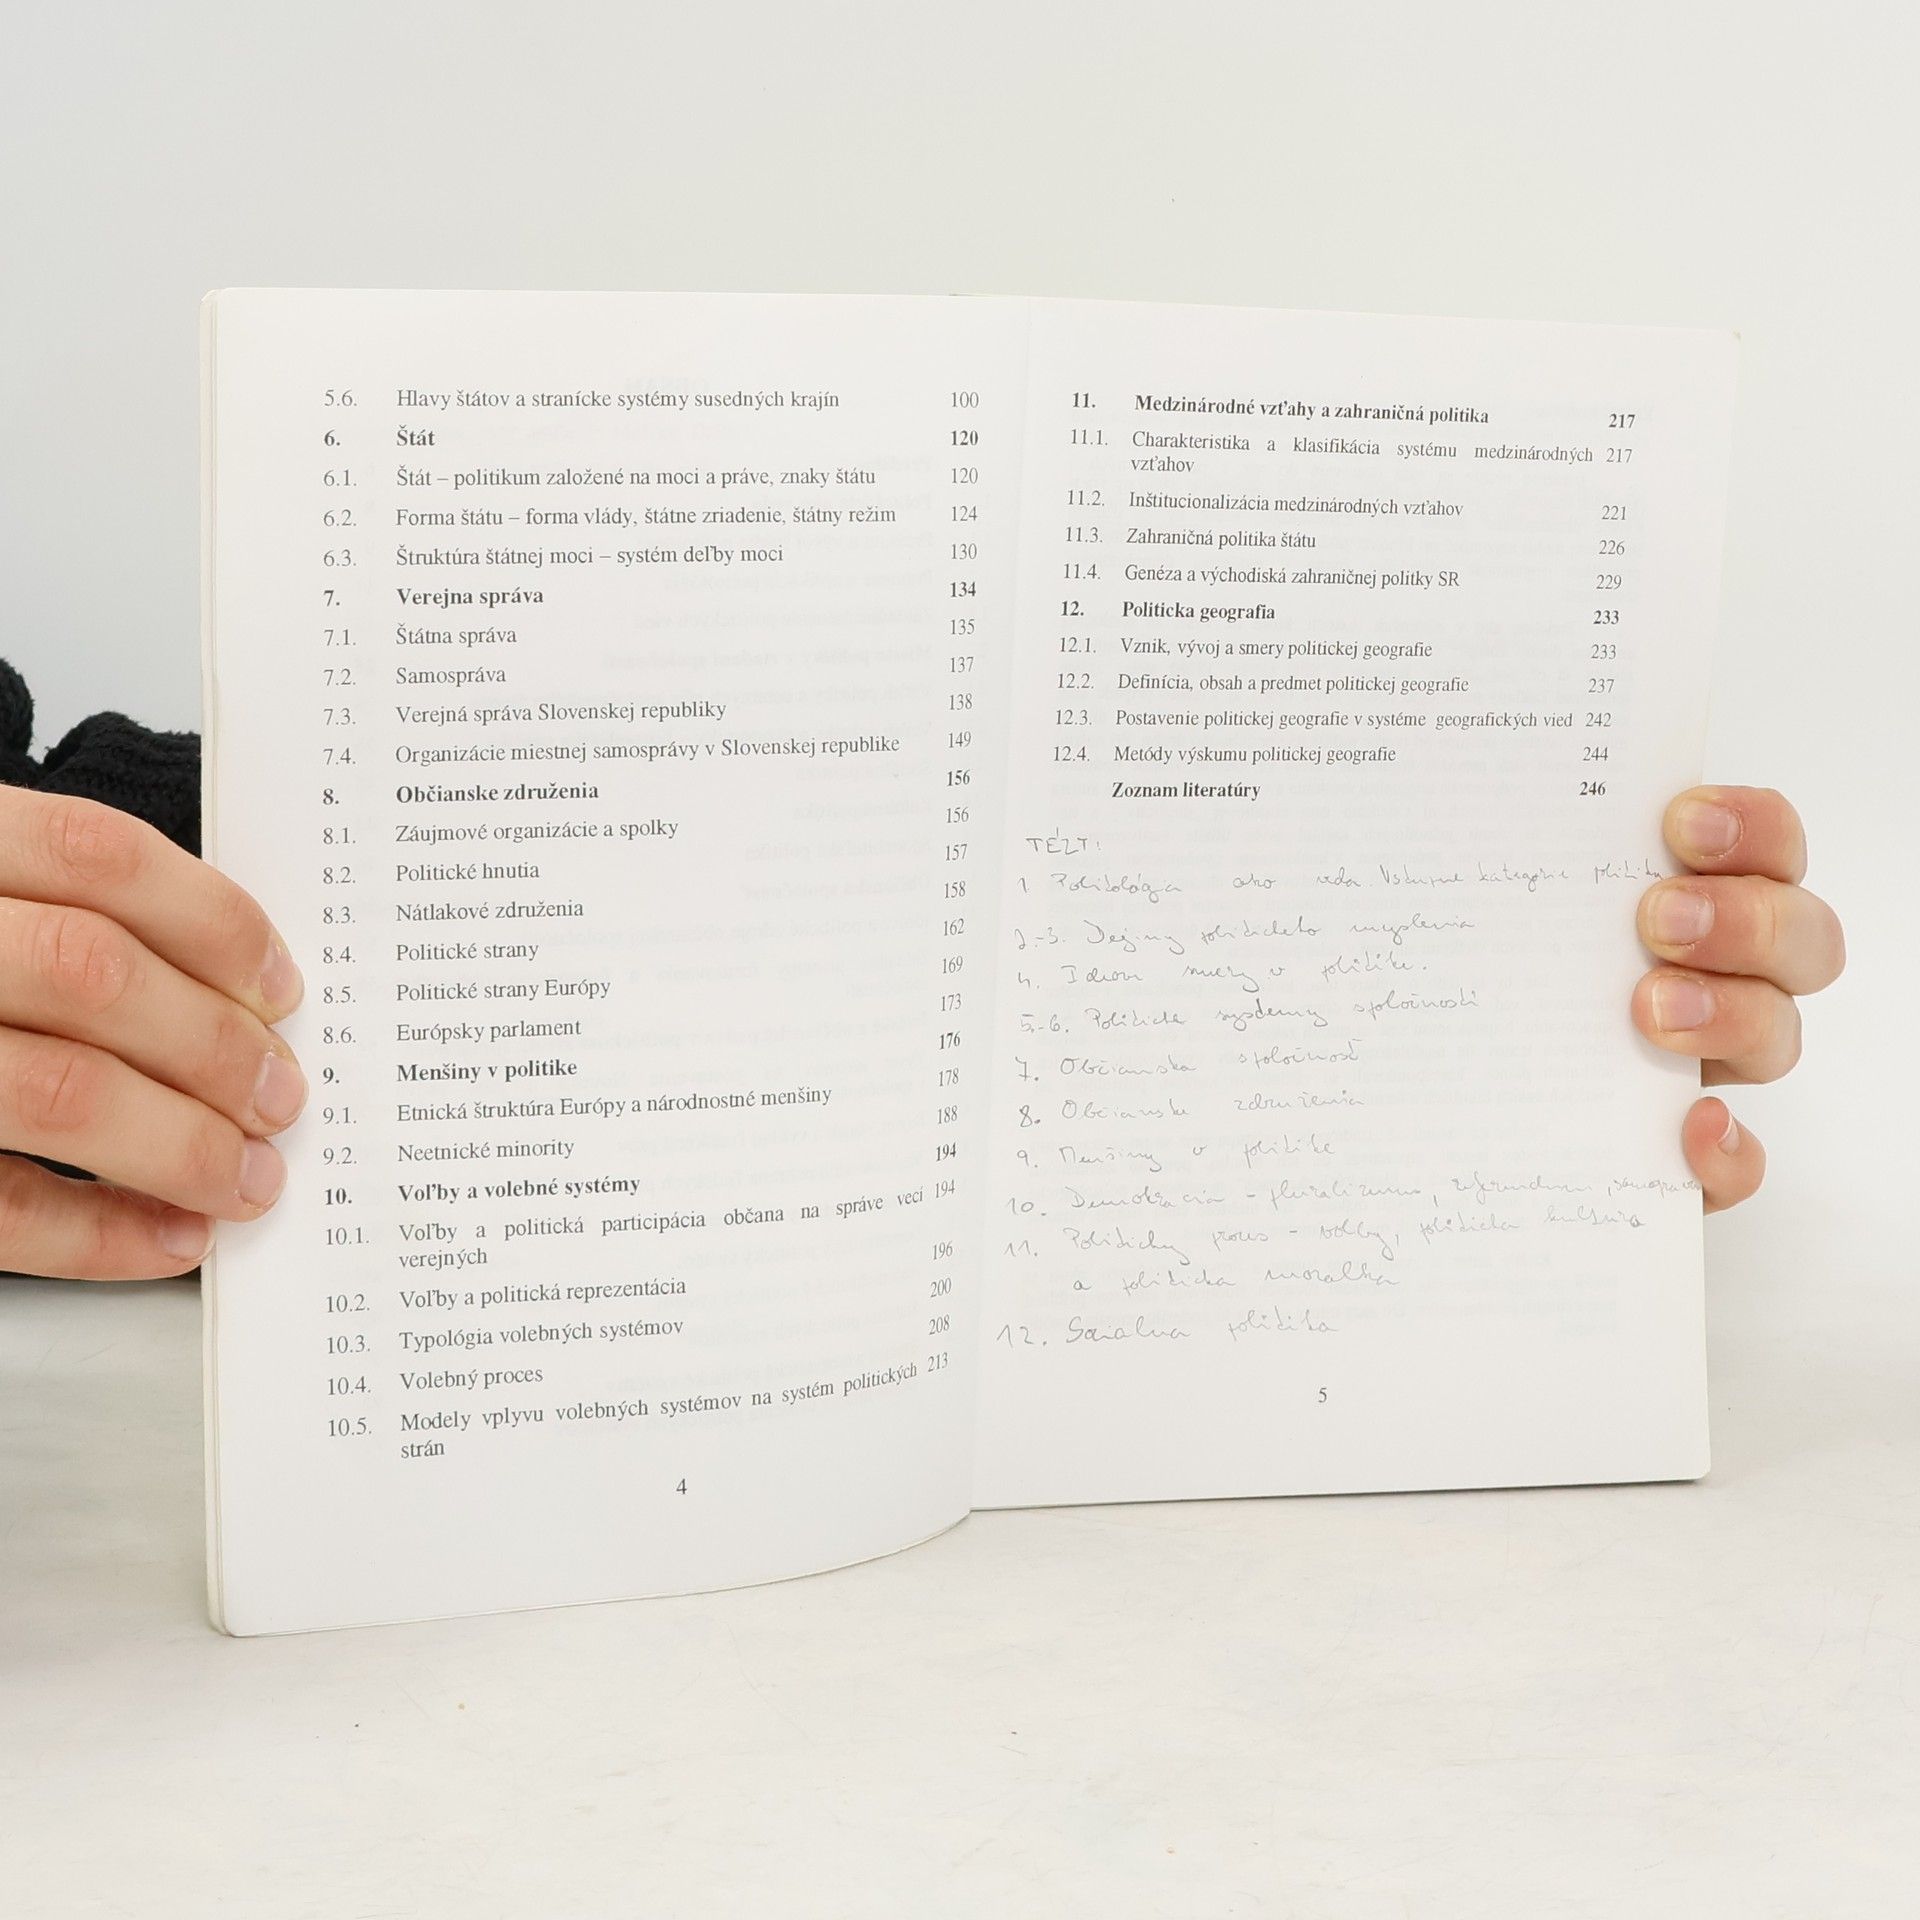 5.6. Hlavy štátov a stranícke systémy susedných krajín 100
6. Štát 120
6.1. Štát – politikum založené na moci a práve, znaky štátu 120
6.2. Forma štátu – forma vlády, štátne zriadenie, štátny režim 124
6.3. Štruktúra štátnej moci – systém deľby moci 130
7. Verejna správa 134
7.1. Štátna správa 135
7.2. Samospráva 137
7.3. Verejná správa Slovenskej republiky 138
7.4. Organizácie miestnej samosprávy v Slovenskej republike 149
8. Občianske združenia 156
8.1. Záujmové organizácie a spolky 156
8.2. Politické hnutia 157
8.3. Nátlakové združenia 158
8.4. Politické strany 162
8.5. Politické strany Európy 169
8.6. Európsky parlament 173
9. Menšiny v politike 176
9.1. Etnická štruktúra Európy a národnostné menšiny 178
9.2. Neetnické minority 188
10. Voľby a volebné systémy 194
10.1. Voľby a politická participácia občana na správe vecí 194
verejných
10.2. Voľby a politická reprezentácia 196
10.3. Typológia volebných systémov 200
10.4. Volebný proces 208
10.5. Modely vplyvu volebných systémov na systém politických 213
strán
4
11. Medzinárodné vzťahy a zahraničná politika 217
11.1. Charakteristika a klasifikácia systému medzinárodných 217
vzťahov
11.2. Inštitucionalizácia medzinárodných vzťahov 221
11.3. Zahraničná politika štátu 226
11.4. Genéza a východiská zahraničnej politky SR 229
12. Politicka geografia 233
12.1. Vznik, vývoj a smery politickej geografie 233
12.2. Definícia, obsah a predmet politickej geografie 237
12.3. Postavenie politickej geografie v systéme geografických vied 242
12.4. Metódy výskumu politickej geografie 244
Zoznam literatúry 246
1. Politológia ako veda. Vstupne kategórie politiky
2.-3. Dejiny politického myslenia
4. smery v politike.
5.-6. Politicke systemy spoločnosti
7. Občianska spoločnosť
8. Občianske združenia
9. Menšiny v politike
10. Demokracia - pluralizmus, referendum, samosprava
11. Politicky proces - volby, politicka kultúra
a politicka moralka
12. Socialna politika
5